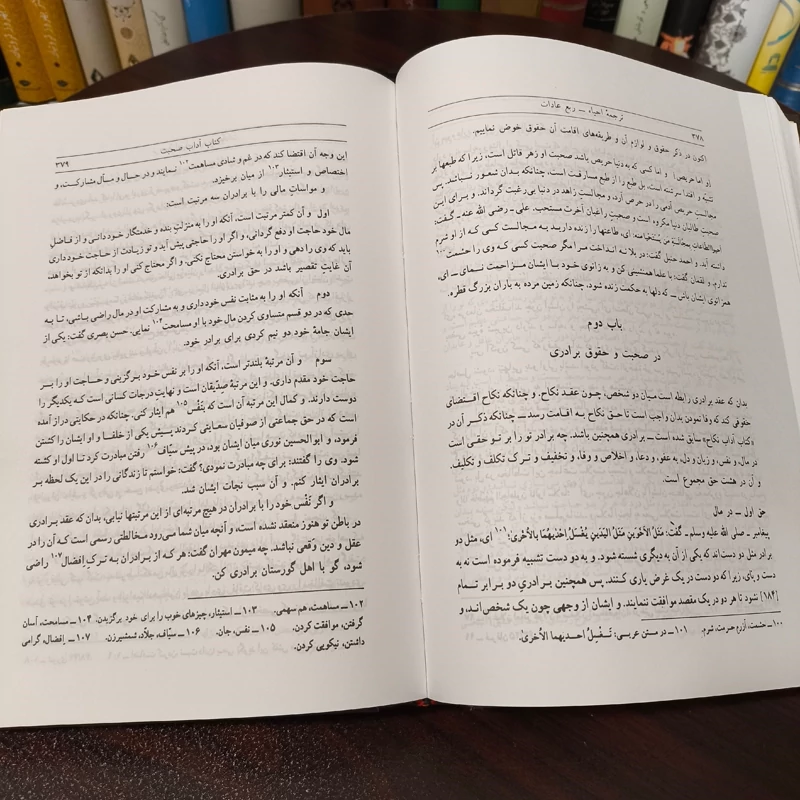 ترجمهٔ احیاء ــ ربع عادات
۳۷۸
اکنون در ذکر حقوق و لوازم آن و طریقه‌های اقامت آن حقوق خوض نماییم.
[و اما حریص] و اما کسی که به دنیا حریص باشد صحبت او زهر قاتل است، زیرا که طبعها بر
تشبه و اقتدا سرشته است، بل طبع را از طبع مسارقت است، چنانکه بدان شعور نباشد. پس
مجالست حریص آدمی را در حرص آرد، و مجالست زاهد در دنیا بی رغبت گرداند. و برای این
صحبت طالبان دنیا مکروه است و صحبت راغبان آخرت مستحب. علی ــ رضی الله عنه ــ گفت:
احیوا الطاعات بمجالسة من یستحیا منه، ای، طاعتها را زنده دارید به مجالست کسی که از او شرم
داشته آید. و احمد حنبل گفت: در بلا نه انداخت مرا مگر صحبت کسی که وی را حشمت۱۰۰
ندارم. و لقمان گفت: با علما همنشینی کن و به زانوی خود با ایشان مزاحمت نمای ــ ای،
همزانوی ایشان باش ــ که دلها به حکمت زنده شود، چنانکه زمین مرده به باران بزرگ قطره.
باب دوم
در صحبت و حقوق برادری
بدان که عقد برادری رابطه است میان دو شخص، چون عقد نکاح. و چنانکه نکاح اقتضای
حقوقی کند که وفا نمودن بدان واجب است تا حق نکاح به اقامت رسد ــ چنانکه ذکر آن در
«کتاب آداب نکاح» سابق شده است ــ برادری همچنین باشد. چه برادر تو را بر تو حقی است
در مال، و نفس، و زبان و دل، به عفو، و دعا، و اخلاص و وفا، و تخفیف و ترک تکلف و تکلیف.
و آن در هشت حق مجموع است.
حق اول ــ در مال
پیغامبر ــ صلی الله علیه و سلم ــ گفت: مَثَلُ الأَخَوَینِ مَثَلُ الیَدَینِ یُغسَلُ احدَیهُما بِالأُخری؛۱۰۱ ای، مثل دو
برادر مثل دو دست‌اند که یکی از آن به دیگری شسته شود. و به دو دست تشبیه فرموده است نه به
دست و پای، زیرا که دو دست در یک غرض یاری کنند. پس همچنین برادریِ دو برابر تمام
[۱۸۴] نشود تا هر دو در یک مقصد موافقت ننمایند. و ایشان از وجهی چون یک شخص‌اند، و
۱۰۰ ــ حشمت، آزرم حرمت، شرم. ۱۰۱ ــ در متن عربی: تَغسِلُ احدیهما الأُخریٰ.
کتاب آداب صحبت
۳۷۹
این وجه آن اقتضا کند که در غم و شادی مساهمت۱۰۲ نمایند و در حال و مآل مشارکت، و
اختصاص و استیثار۱۰۳ از میان برخیزد.
و مواساتِ مالی را با برادران سه مرتبت است:
اول و آن کمتر مرتبت است، آنکه او را به منزلتِ بنده و خدمتگار خود دانی و از فاضلِ
مال خود حاجت او دفع گردانی، و اگر او را حاجتی پیش آید و تو زیادت از حاجت خود داری
باید که وی را دهی و او را به خواستن محتاج نکنی. و اگر محتاج کنی او را بدانکه از تو بخواهد،
آن غایتِ تقصیر باشد در حق برادری.
دوم آنکه او را به مثابت نفس خود داری و به مشارکت او در مال راضی باشی، تا به
حدی که در دو قسم متساوی کردن مال خود با او مسامحت۱۰۴ نمایی. حسن بصری گفت: یکی از
ایشان جامهٔ خود دو نیم کردی برای برادر خود.
سوم و آن مرتبهٔ بلندتر است، آنکه او را بر نفس خود برگزینی و حاجت او را بر
حاجت خود مقدم داری. و این مرتبهٔ صدّیقان است و نهایتِ درجات کسانی است که یکدیگر را
دوست دارند. و کمال این مرتبه آن است که بنَفْس۱۰۵ هم ایثار کنی. چنانکه در حکایتی دراز آمده
است که در حق جماعتی از صوفیان سعایتی کردند پیش یکی از خلفا. و او ایشان را کشتن
فرمود، و ابوالحسین نوری میان ایشان بود، در پیش سیّاف۱۰۶ رفتن مبادرت کرد تا اول او کشته
شود. وی را گفتند: برای چه مبادرت نمودی؟ گفت: خواستم تا زندگانی را در این یک لحظه بر
برادران ایثار کنم. و آن سبب نجات ایشان شد.
و اگر نَفْس خود را با برادران در هیچ مرتبه‌ای از این مرتبتها نیابی، بدان که عقد برادری
در باطن تو هنوز منعقد نشده است، و آنچه میان شما می‌رود مخالطتی رسمی است که آن را در
عقل و دین وَقعی نباشد. چه میمون مهران گفت: هر که از برادران به ترکِ اِفضال۱۰۷ راضی
شود، گو با اهل گورستان برادری کن.
۱۰۲ ــ مساهمت، هم سهمی. ۱۰۳ ــ استیثار، چیزهای خوب را برای خود برگزیدن. ۱۰۴ ــ مسامحت، آسان
گرفتن، موافقت کردن. ۱۰۵ ــ نفس، جان. ۱۰۶ ــ سیّاف، جلّاد، شمشیرزن. ۱۰۷ ــ اِفضال، گرامی
داشتن، نیکویی کردن.